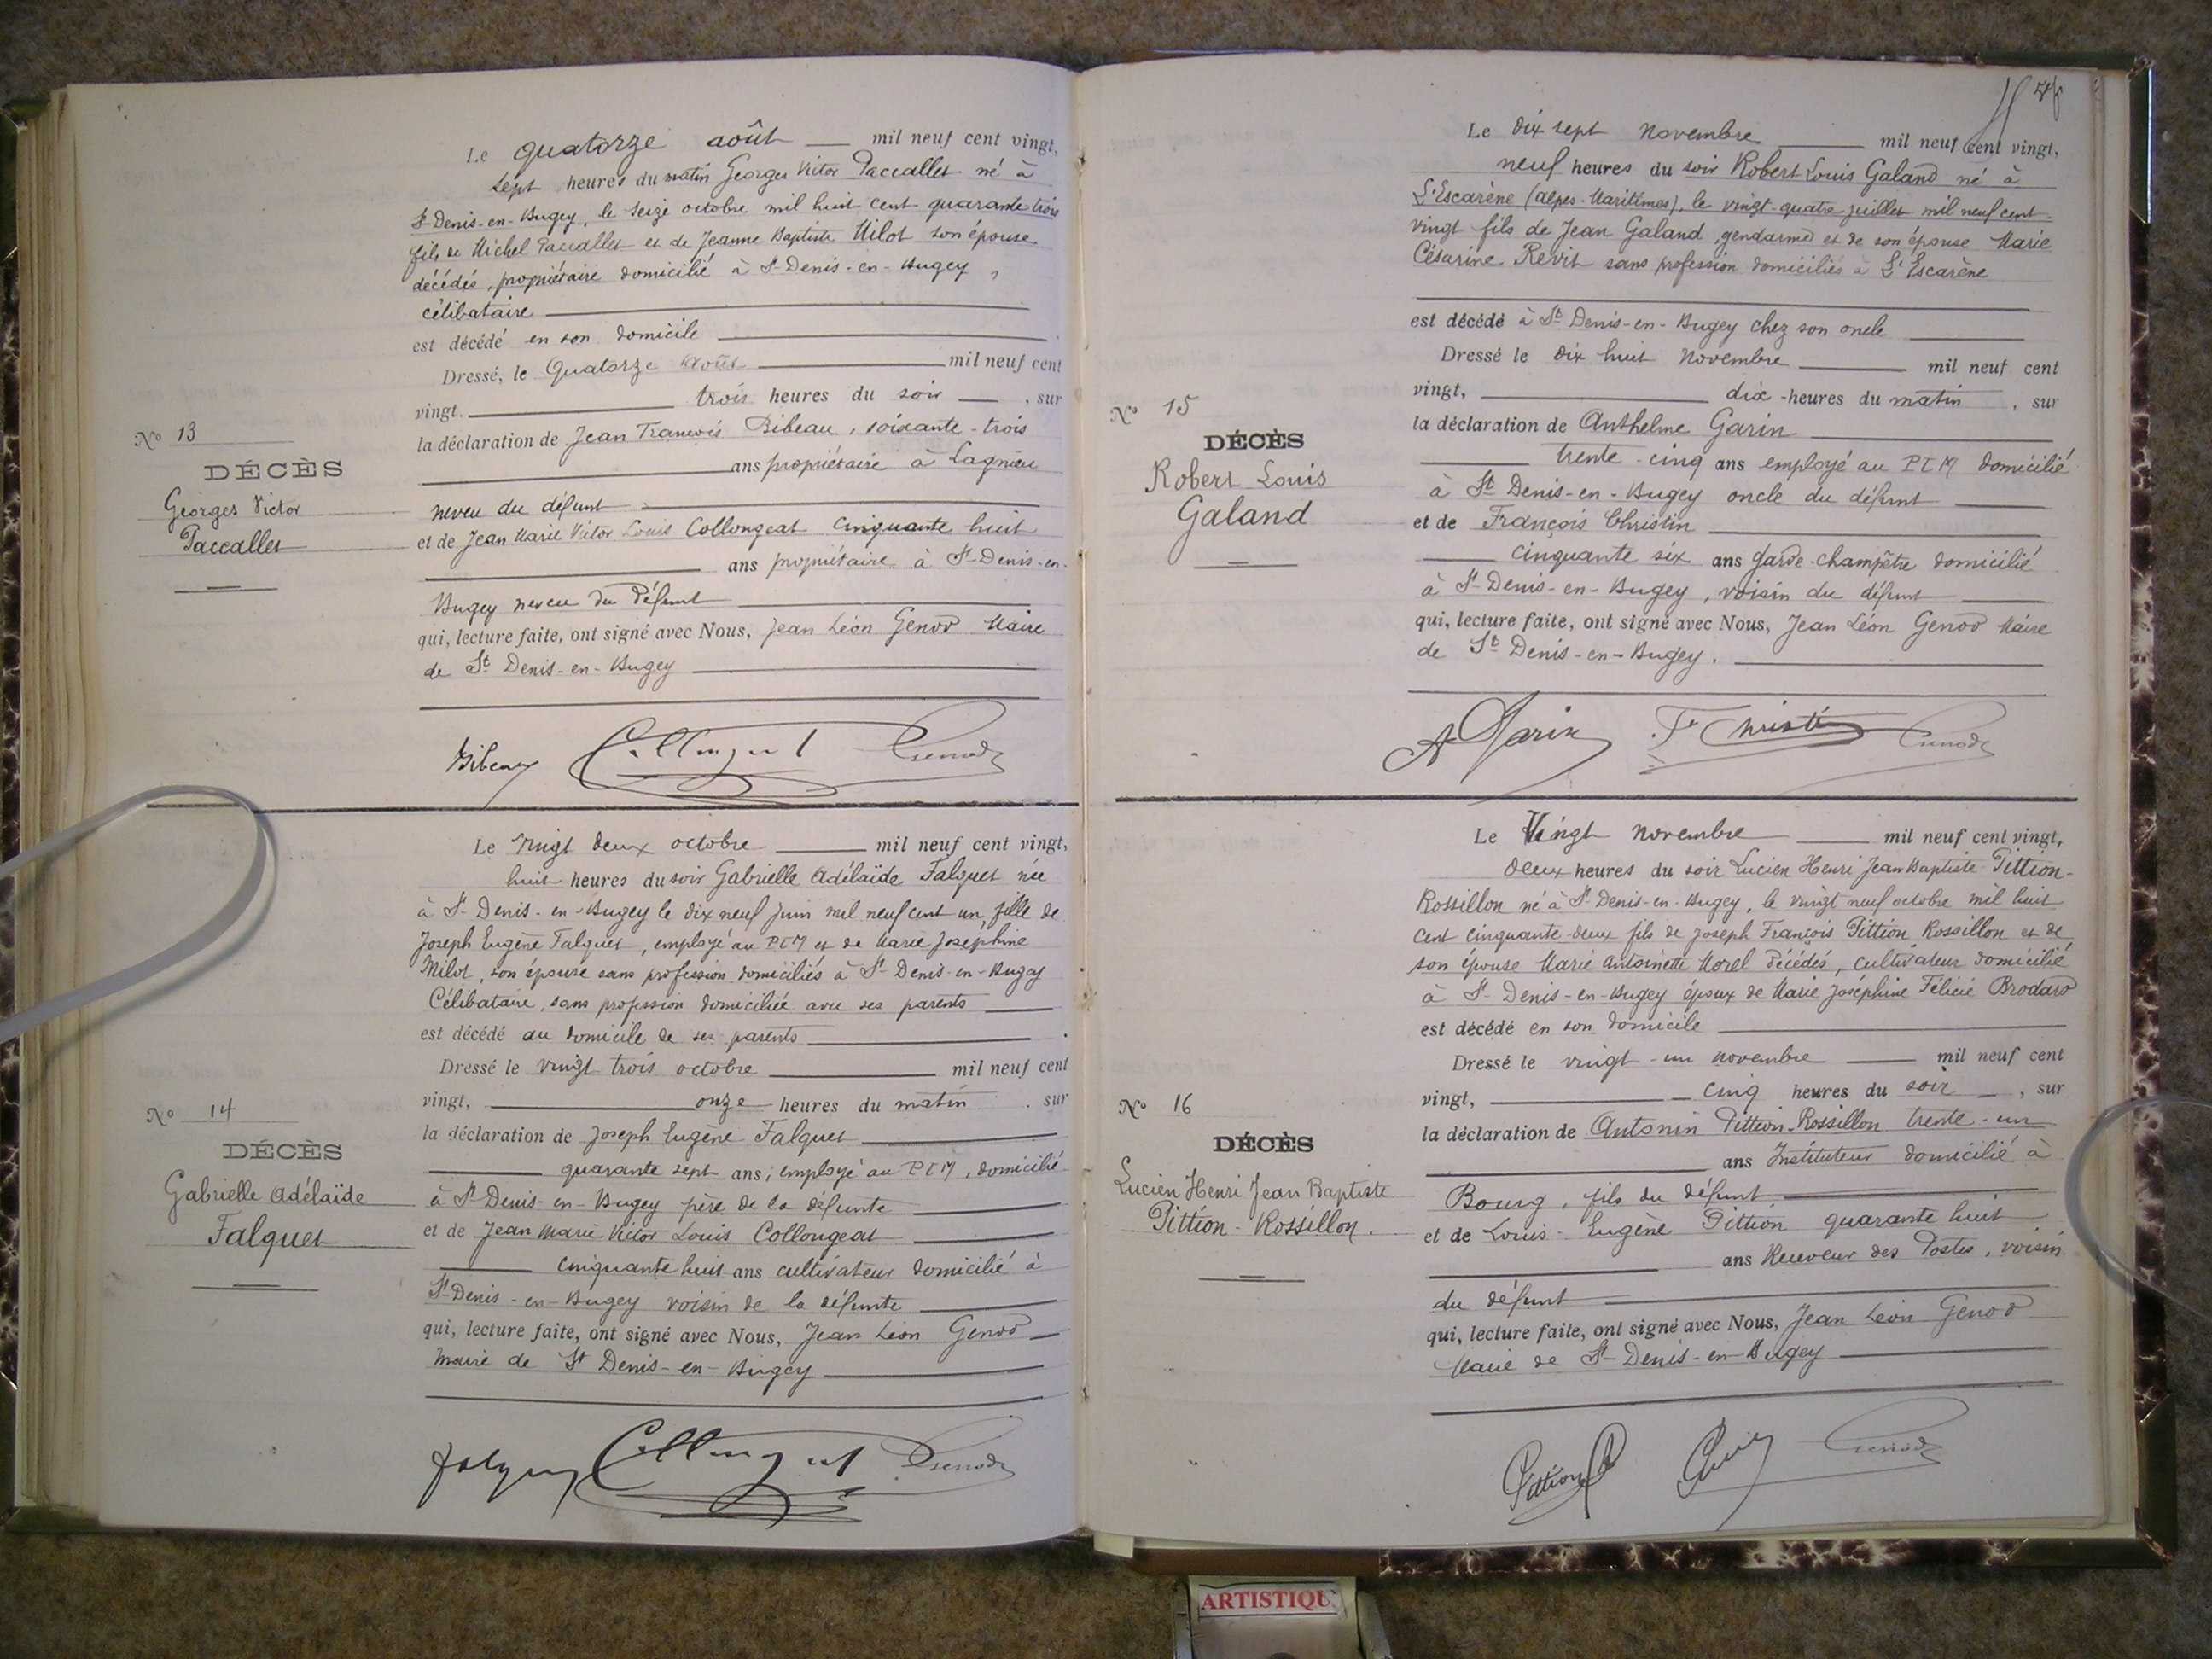 Le quatorze août mil neuf cent vingt,
sept heures du matin Georges Victor Paccallet né à
St-Denis-en-Bugey, le seize octobre mil huit cent quarante trois
fils de Michel Paccallet et de Jeanne Baptiste Milot son épouse
décédés, propriétaire domicilié à St-Denis-en-Bugey,
célibataire
est décédé en son domicile
Dressé, le Quatorze août mil neuf cent
vingt. trois heures du soir, sur
la déclaration de Jean François Bibeau, soixante-trois
ans propriétaire à Lagnieu
neveu du défunt
et de Jean Marie Victor Louis Collongeat cinquante huit
ans propriétaire à St-Denis-en-
Bugey neveu du défunt
qui, lecture faite, ont signé avec Nous, Jean Léon Genod Maire
de St Denis-en-Bugey
No 13
DÉCÈS
Georges Victor
Paccallet
Collongeat Genod
Le vingt deux octobre mil neuf cent vingt,
huit heures du soir Gabrielle Adélaïde Falquet née
à St-Denis-en-Bugey le dix neuf juin mil neuf cent un, fille de
Joseph Eugène Falquet, employé au PLM et de Marie Joséphine
Milot, son épouse sans profession domiciliés à St-Denis-en-Bugey
Célibataire, sans profession domiciliée avec ses parents
est décédé au domicile de ses parents
Dressé le vingt trois octobre mil neuf cent
vingt, onze heures du matin, sur
la déclaration de Joseph Eugène Falquet
quarante sept ans, employé au PLM, domicilié
à St-Denis-en-Bugey père de la défunte
et de Jean Marie Victor Louis Collongeat
cinquante huit ans cultivateur domicilié à
St-Denis-en-Bugey voisin de la défunte
qui, lecture faite, ont signé avec Nous, Jean Léon Genod
Maire de St Denis-en-Bugey
No 14
DÉCÈS
Gabrielle Adélaïde
Falquet
Falquet Collongeat Genod
Le dix sept novembre mil neuf cent vingt,
neuf heures du soir Robert Louis Galand né à
L'Escarène (Alpes-Maritimes), le vingt-quatre juillet mil neuf cent
vingt fils de Jean Galand, gendarme et de son épouse Marie
Césarine Revit sans profession domiciliés à L'Escarène
est décédé à St-Denis-en-Bugey chez son oncle
Dressé le dix huit novembre mil neuf cent
vingt, dix heures du matin, sur
la déclaration de Anthelme Garin
trente-cinq ans employé au PLM domicilié
à St Denis-en-Bugey oncle du défunt
et de François Christin
cinquante six ans garde-champêtre domicilié
à St-Denis-en-Bugey, voisin du défunt
qui, lecture faite, ont signé avec Nous, Jean Léon Genod Maire
de St Denis-en-Bugey.
No 15
DÉCÈS
Robert Louis
Galand
A Garin F Christin Genod
Le Vingt novembre mil neuf cent vingt,
deux heures du soir Lucien Henri Jean Baptiste Pittion-
Rossillon né à St-Denis-en-Bugey, le vingt neuf octobre mil huit
cent cinquante-deux fils de Joseph François Pittion Rossillon et de
son épouse Marie Antoinette Morel décédés, cultivateur domicilié
à St-Denis-en-Bugey époux de Marie Joséphine Félicie Brodard
est décédé en son domicile
Dressé le vingt-un novembre mil neuf cent
vingt, cinq heures du soir, sur
la déclaration de Antonin Pittion-Rossillon trente-un
ans Instituteur domicilié à
Bourg, fils du défunt
et de Louis-Eugène Pittion quarante huit
ans Receveur des Postes, voisin
du défunt
qui, lecture faite, ont signé avec Nous, Jean Léon Genod
Maire de St-Denis-en-Bugey
No 16
DÉCÈS
Lucien Henri Jean Baptiste
Pittion-Rossillon.
Pittion Genod
ARTISTIQU